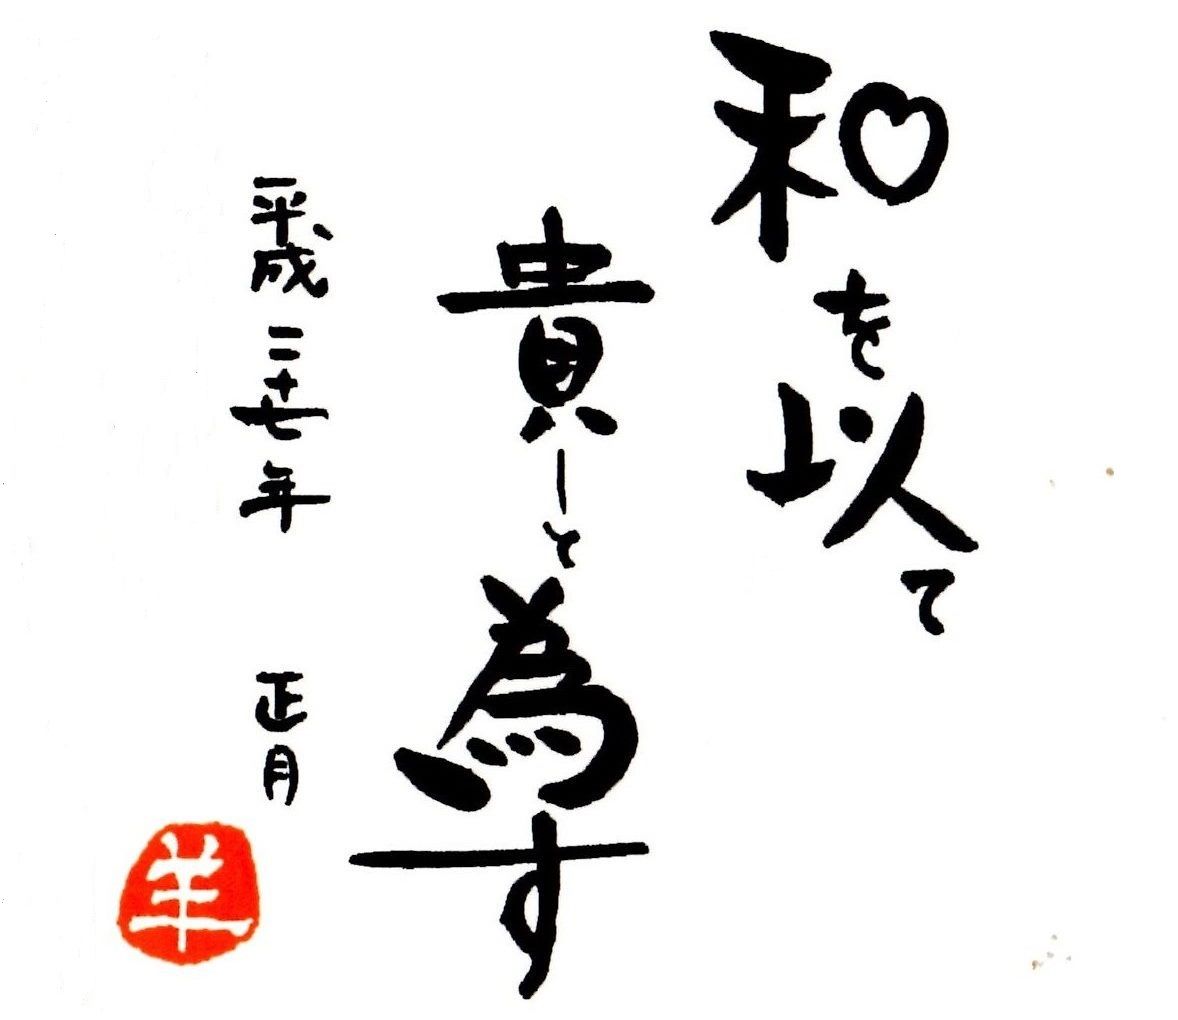 和を以て
貴しと為す
平成二十七年 正月
羊